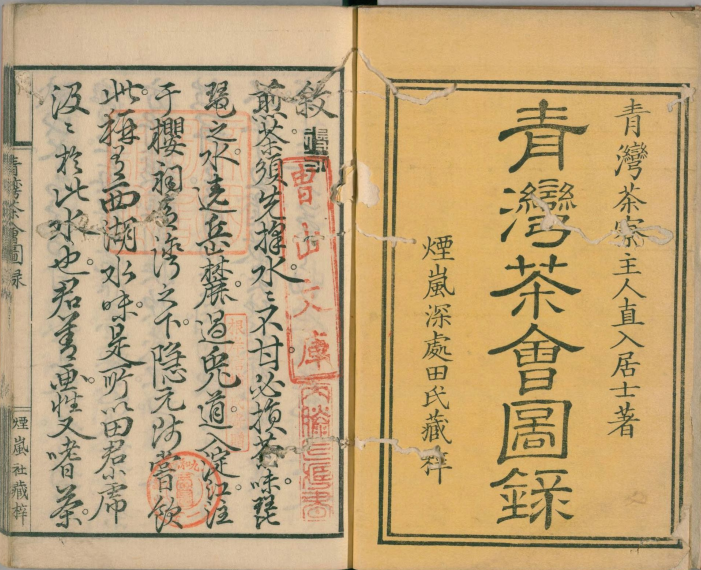 青灣茶寮主人直入居士著
青灣茶會圖録
煙嵐深處田氏藏梓
敘
煎茶須先擇水〻不甘必損茶味琵
琶之水遶岳麓過兎道入淀江注
于櫻祠青湾之下隱元師嘗飲
此稱有西湖水味是所以田君常
汲〻於此水也君善画性又嗜茶
青灣茶會圖録
煙嵐社藏梓
文庫